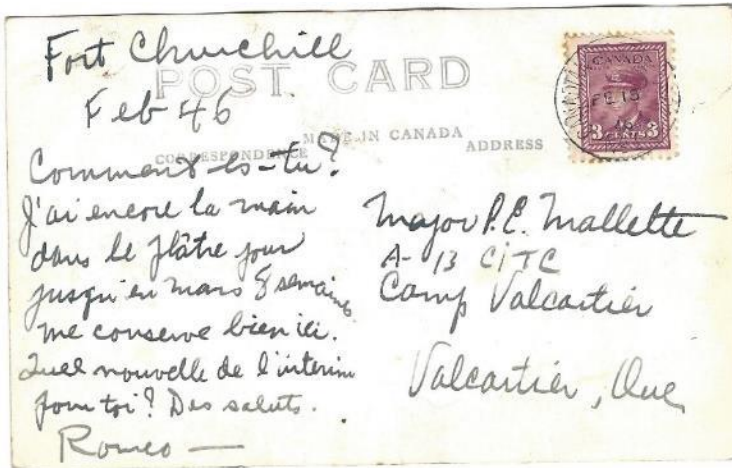 Fort Churchill
Feb 46
POST CARD
MADE IN CANADA
CORRESPONDENCE
ADDRESS
CANADA
FE 15
3 CENTS 3
Comment es-tu?
J'ai encore la main
dans le plâtre pour
jusqu'en mars 8 semaines
me conserve bien ici.
Quel nouvelle de l'interim
pour toi? Des saluts.
Romeo —
Major P.E. Mallette
A-13 CITC
Camp Valcartier
Valcartier, Que